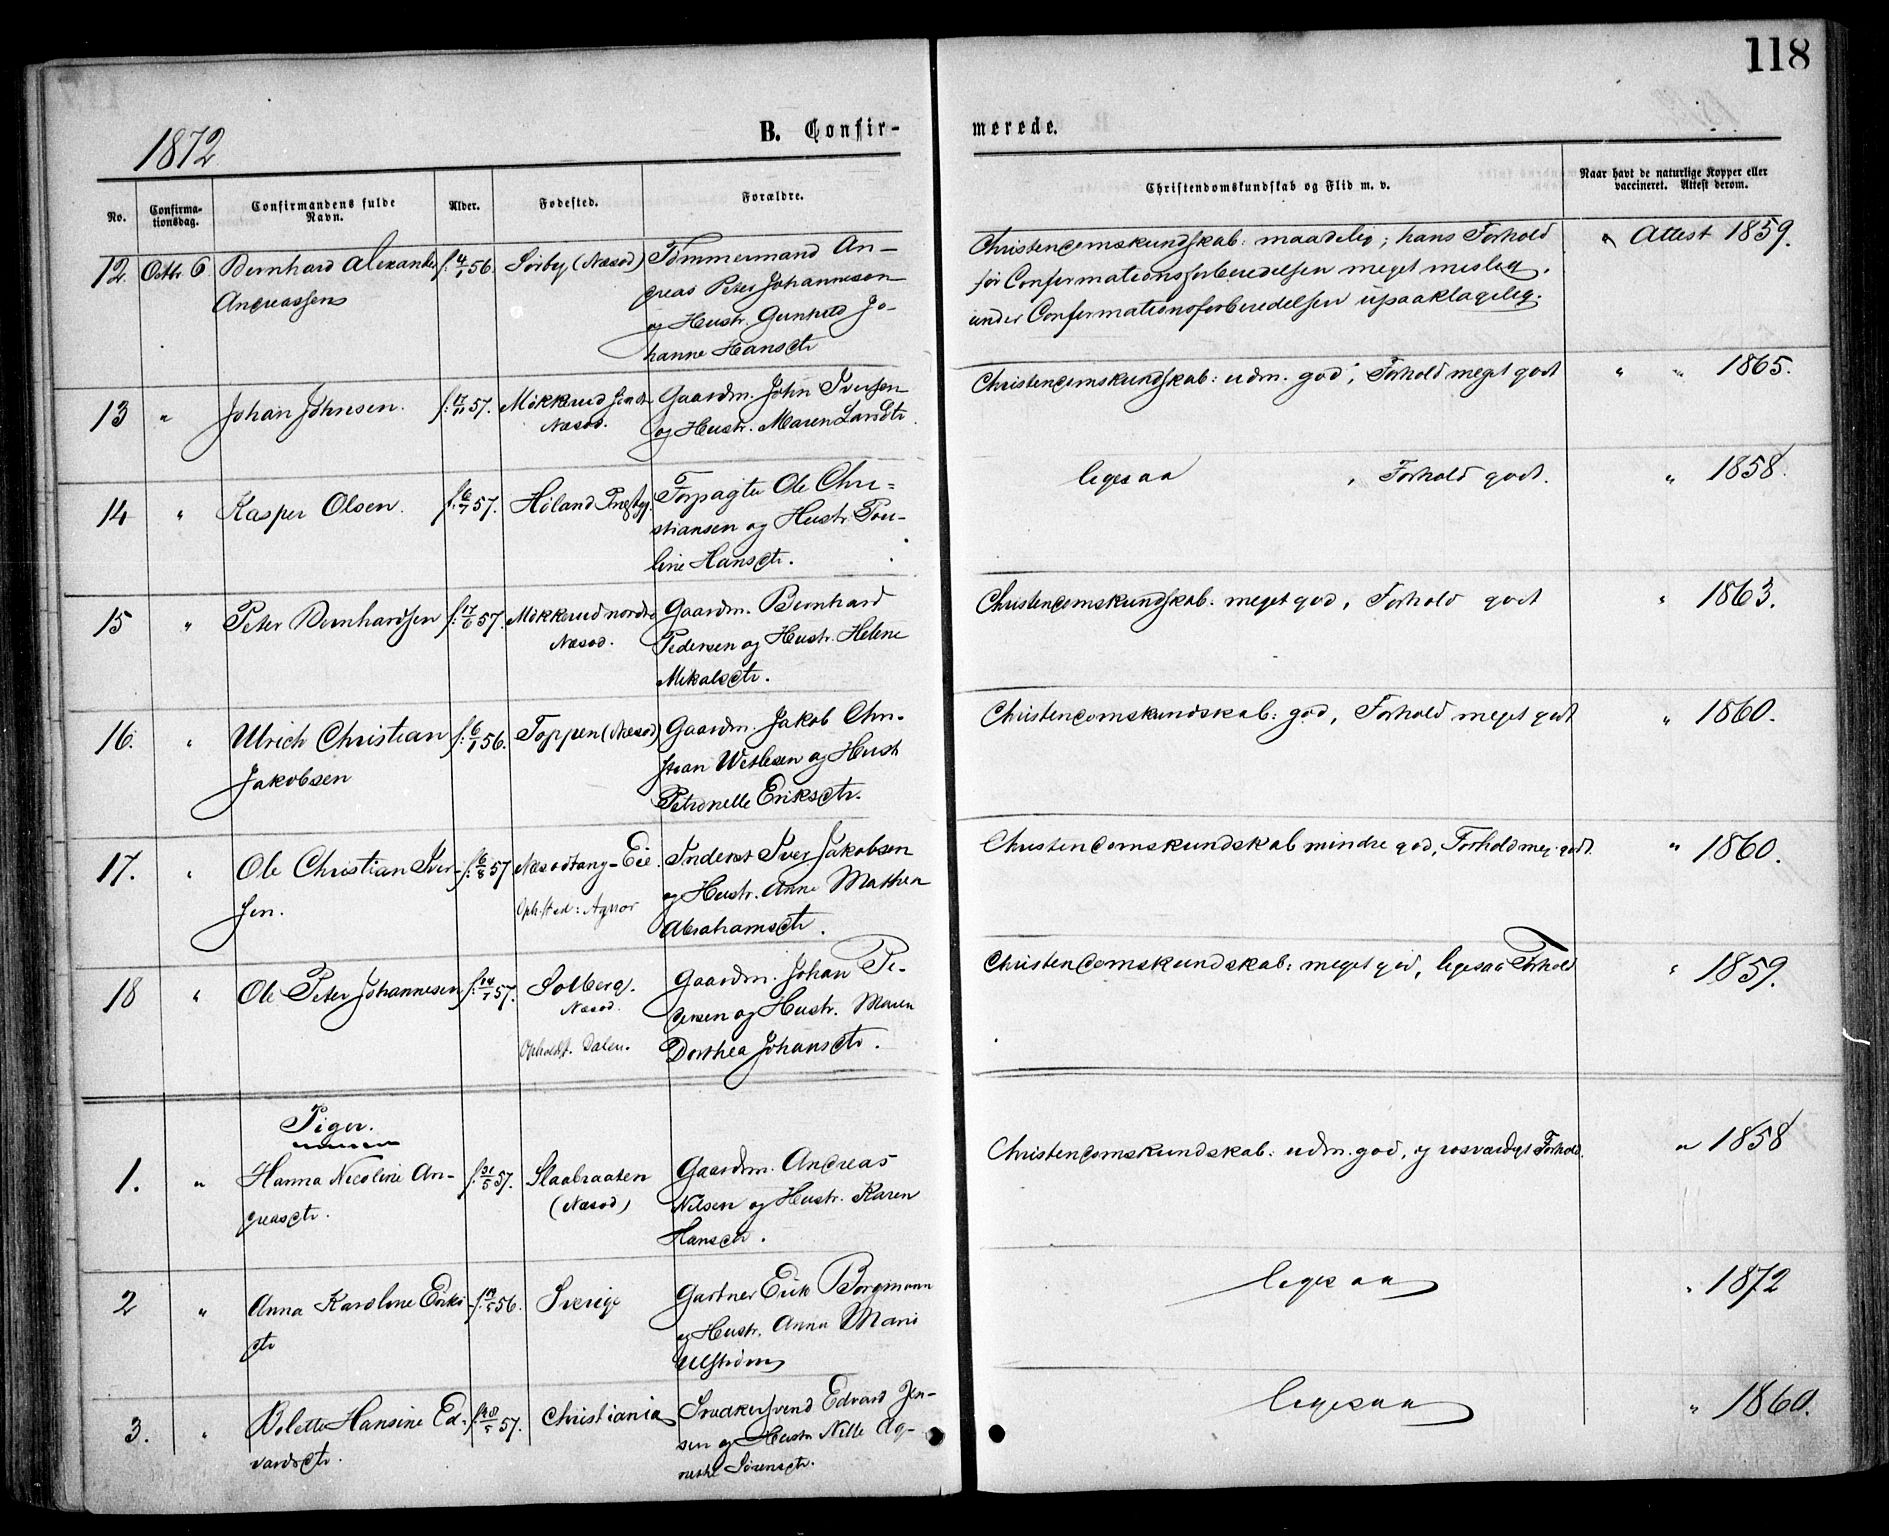 118
1872
B. Confir-
merede.
No.
Confirma-
tionsdag.
Confirmandens fulde
Navn.
Alder.
Fødested.
Forældre.
Christendomskundskab og Flid m. v.
Naar havt de naturlige Kopper eller
vaccineret. Attest derom.
12. Octbr 6 Bernhard Alexander f. 4/1 56. Sørby (Næsod) Tømmermand An-
Andreassen
dreas Peter Johannesen
og Hustr. Gunhild Jo-
hanne Hansdtr
Christendomskundskab: maadelig; hans Forhold
før Confirmationsforberedelsen meget mislig,
under Confirmationsforberedelsen upaaklagelig.
Attest 1859.
13 " Johan Johnsen. 57. Mökkerud
Næsod.
Gaardm. John Iversen
og Hustr. Maren Larsdtr.
Christendomskundskab: udm. god; Forhold meget godt
" " 1865.
14 " Kasper Olsen. f. 6/7 57. Høland Præstgj.
Forpagter Ole Chri-
stiansen og Hustr. Pou-
line Hansdtr.
ligesaa, Forhold godt.
" 1858.
15 " Peter Bernhardsen f. 17/6 57. Mökkerud nordre
Næsod.
Gaardm. Bernhard
Pedersen og Hustr. Helene
Mikalsdtr.
Christendomskundskab: meget god, Forhold godt
" 1863.
16. " Ulrich Christian f. 6/1 56. Toppen (Næsod)
Jakobsen
Gaardm. Jakob Chri-
stian Wetlesen og Hustr
Petronelle Eriksdtr.
Christendomskundskab: god, Forhold meget godt
" 1860.
17. " Ole Christian Iver-
sen.
f. 6/8 57 Næsodtang-Eie.
Opholdsted: Agnor
Inderst Iver Jakobsen
og Hustr. Anne Mathea
Abrahamsdtr.
Christendomskundskab mindre god, Forhold meg. godt.
" 1860.
18 " Ole Peter Johannesen 57. Solberg.
Næsod.
Opholdst. Dalen.
Gaardm. Johan Pe-
dersen og Hustr. Maren
Dorthea Johansdtr.
Christendomskundskab: meget god, ligesaa Forhold
" 1859.
Piger.
1. " Hanna Nicoline An-
dreasdtr.
f. 31/5 57. Slaabraaten
(Næsod)
Gaardm. Andreas
Nilsen og Hustr. Karen
Hansdtr.
Christendomskundskab: udm. god, og rosværdigt Forhold.
" 1858
2 " Anna Karoline Eriks-
dtr
56. Sverige
Gartner Erik Borgmann
og Hustr. Anna Marie
Ulstrøm
ligesaa
" 1872
3. " Bolette Hansine Ed-
vardsdtr.
57. Christiania
Snedkersvend Edvard Jen-
sen og Hustr Nille Ag-
nethe Sörensdtr.
ligesaa
" 1860.